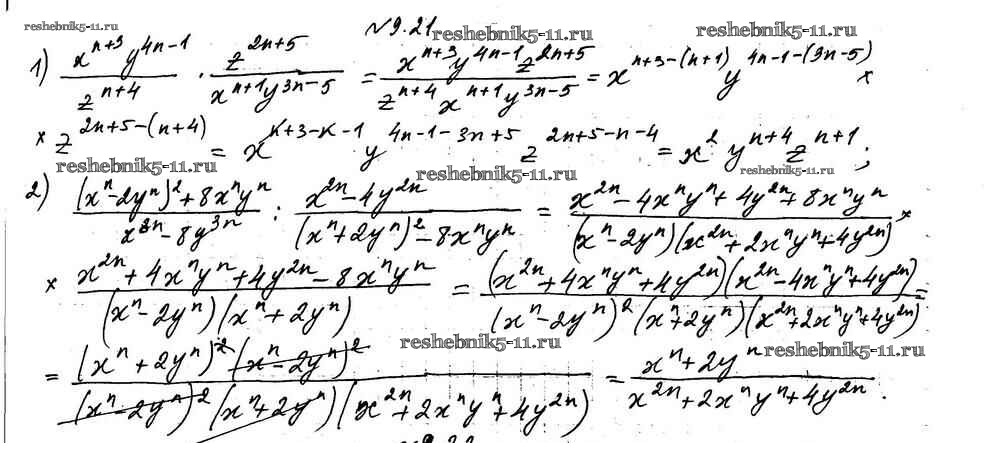 reshebnik5-11.ru
№9.21
reshebnik5-11.ru
1) \frac{x^{n+3}y^{4n-1}}{z^{n+4}} \cdot \frac{z^{2n+5}}{x^{n+1}y^{3n-5}} = \frac{x^{n+3}y^{4n-1}z^{2n+5}}{z^{n+4}x^{n+1}y^{3n-5}} = x^{n+3-(n+1)} y^{4n-1-(3n-5)} ×
reshebnik5-11.ru
× z^{2n+5-(n+4)} = x^{n+3-n-1} y^{4n-1-3n+5} z^{2n+5-n-4} = x^2 y^{n+4} z^{n+1};
reshebnik5-11.ru
reshebnik5-11.ru
2) \frac{(x^n-2y^n)^2+8x^ny^n}{x^{3n}-8y^{3n}} : \frac{x^{2n}-4y^{2n}}{(x^n+2y^n)^2-8x^ny^n} = \frac{x^{2n}-4x^ny^n+4y^{2n}+8x^ny^n}{(x^n-2y^n)(x^{2n}+2x^ny^n+4y^{2n})} ×
× \frac{x^{2n}+4x^ny^n+4y^{2n}-8x^ny^n}{(x^n-2y^n)(x^n+2y^n)} = \frac{(x^{2n}+4x^ny^n+4y^{2n})(x^{2n}-4x^ny^n+4y^{2n})}{(x^n-2y^n)^2(x^n+2y^n)(x^{2n}+2x^ny^n+4y^{2n})} =
reshebnik5-11.ru
reshebnik5-11.ru
= \frac{(x^n+2y^n)^2(x^n-2y^n)^2}{(x^n-2y^n)^2(x^n+2y^n)(x^{2n}+2x^ny^n+4y^{2n})} = \frac{x^n+2y^n}{x^{2n}+2x^ny^n+4y^{2n}}.